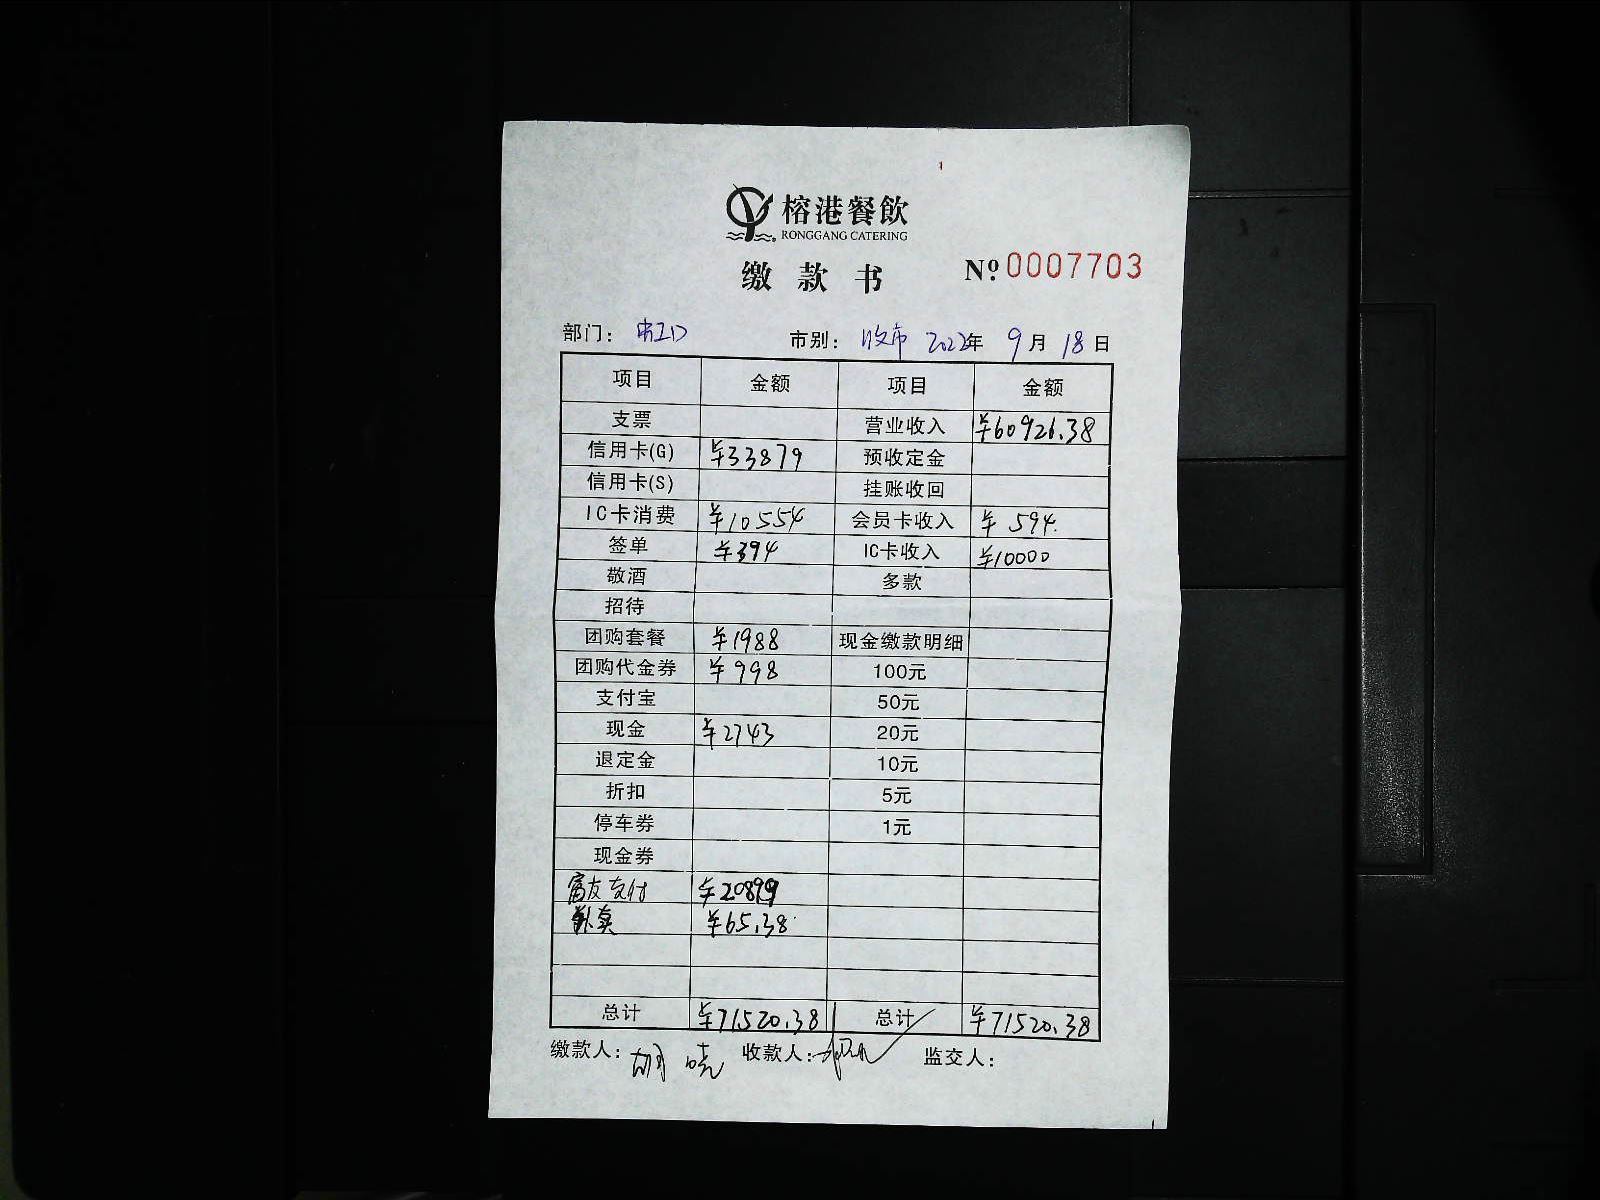 榕港餐飲
RONGGANG CATERING
缴款书 Nº:0007703
部门: 市别: 收市 2022年 9月 18日
项目 金额 项目 金额
支票 营业收入 ¥60926.38
信用卡(G) ¥33879 预收定金
信用卡(S) 挂账收回
IC卡消费 ¥10554 会员卡收入 ¥594.
签单 ¥394 IC卡收入 ¥10000
敬酒 多款
招待
团购套餐 ¥1988 现金缴款明细
团购代金券 ¥998 100元
支付宝 50元
现金 ¥2743 20元
退定金 10元
折扣 5元
停车券 1元
现金券
富友支付 ¥20899
外卖 ¥65.38
总计 ¥71520.38 总计 ¥71520.38
缴款人: 胡晓 收款人: 监交人: